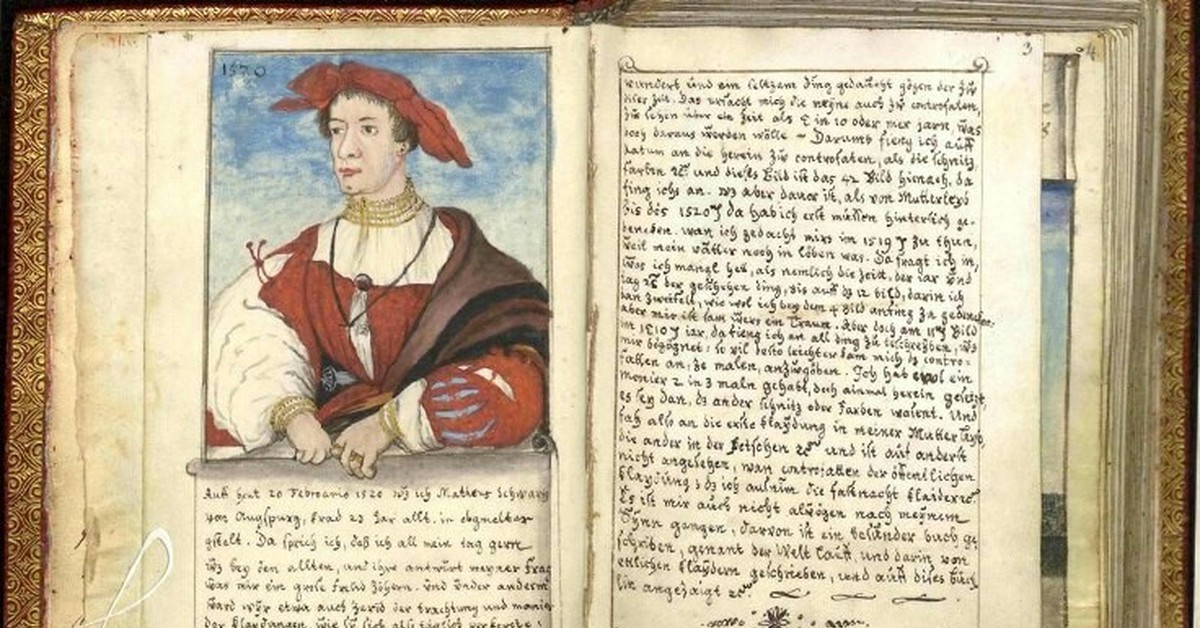 1520
Auff heut 20 Februario 1520 was ich Matheus Schwartz
von Augspurg, krad 23 Jar allt. in obgemelter
gstelt. Da sprich ich, das ich all mein tag gern
was bey den allten, und ihre antwurt meyner frag
was mir ein grosse freud zu hören. Und under anderm
ward wür etwa auch zered der trachtung und manier
der klaydungen, wie sy sich also täglich verkerete.
3
wundert und ein seltzam ding gedaucht gögen der zu
diser Zeit. Das ursacht mich die meyne auch zu controfaten,
zu sehen über ein Zeit als 5 in 10 oder mer jarn, was
doch daraus werden wölle – Darumb fieng ich auff
datum an die herein zu controfaten, als die schnitz
farben &c. und dises Bild ist das 42 Bild hienach, da
fing ichs an. was aber davor ist, als von Mutterleyb
bis dos 1520 J da hab ich erst müssen hinterlich ge-
dencken. wan ich gedacht mirs im 1519 J zu thun,
weil mein vatter noch in löben was. Da fragt ich in,
was ich mangl het, als nemlich die Zeit, der iar und
tag &c. der geschehen ding, bis auff das 12 bild, darin ich
dan zweifelt, wie wol ich bey dem 4 Bild anfing zu gedencken.
aber mir ist sam wers ein Traum. Aber doch am 11 Bild
im 1510 J iar, da fieng ich an all ding zu beschreyben, was
mir begögnet: so vil desto leichter kam mich das contro-
fatten an, ze malen, anzugöben. Ich hab wol ein
monier 2 in 3 maln gehabt, doch ainmal herein gesetzt,
es sey dan, das ander schnitz oder farben warent. Und
fach also an die erste klaydung in meiner Mutter leyb,
die ander in der fetschen &c. und ist auf anderst
nicht angesehen, wan controfatten der öffentlichen
klaydung; das ich aufnim die fasnacht klaider &c.
Es ist mir auch nicht alwögen nach meynem
Synn gangen, darvon ist ein besunder buch ge-
schriben, genant der Welt lauff, und darin von
etlichen klaydern geschrieben, und auff dises buch-
lin angezaigt &c.
4